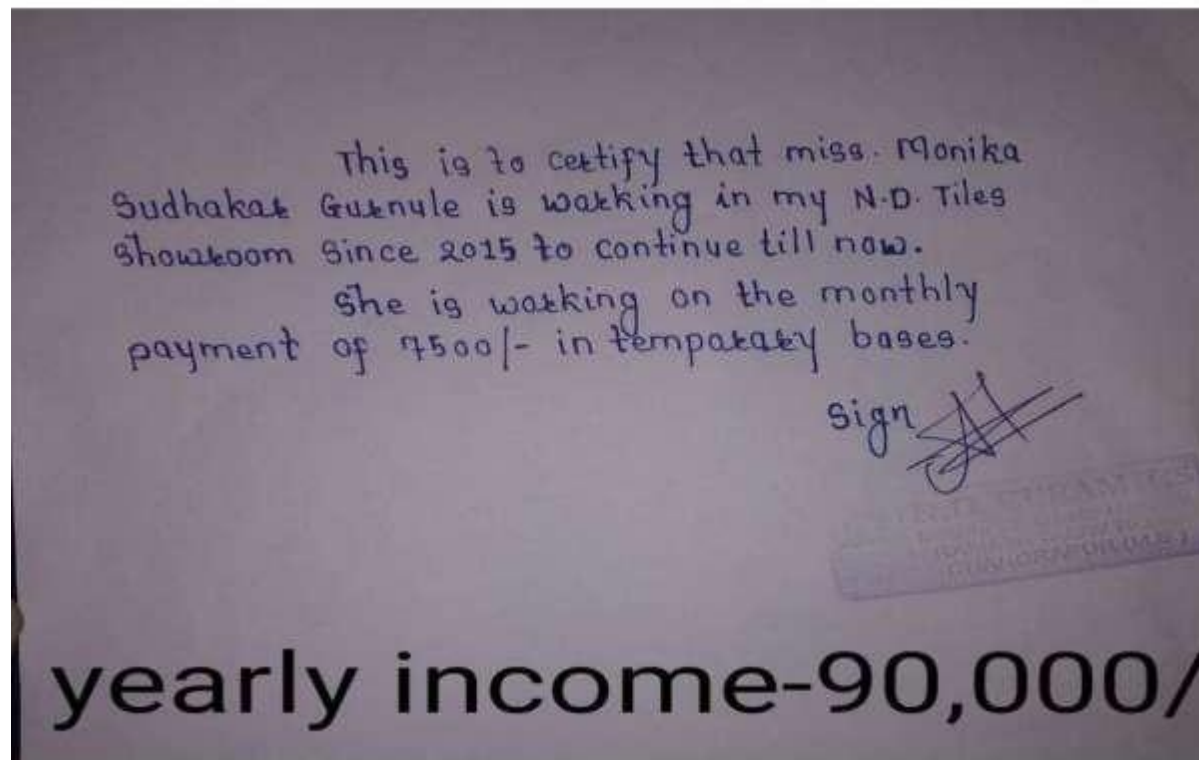 This is to certify that miss. Monika
Sudhakar Gurnule is working in my N.D. Tiles
Showroom Since 2015 to continue till now.
She is working on the monthly
payment of 7500/- in temporary bases.
Sign
yearly income-90,000/